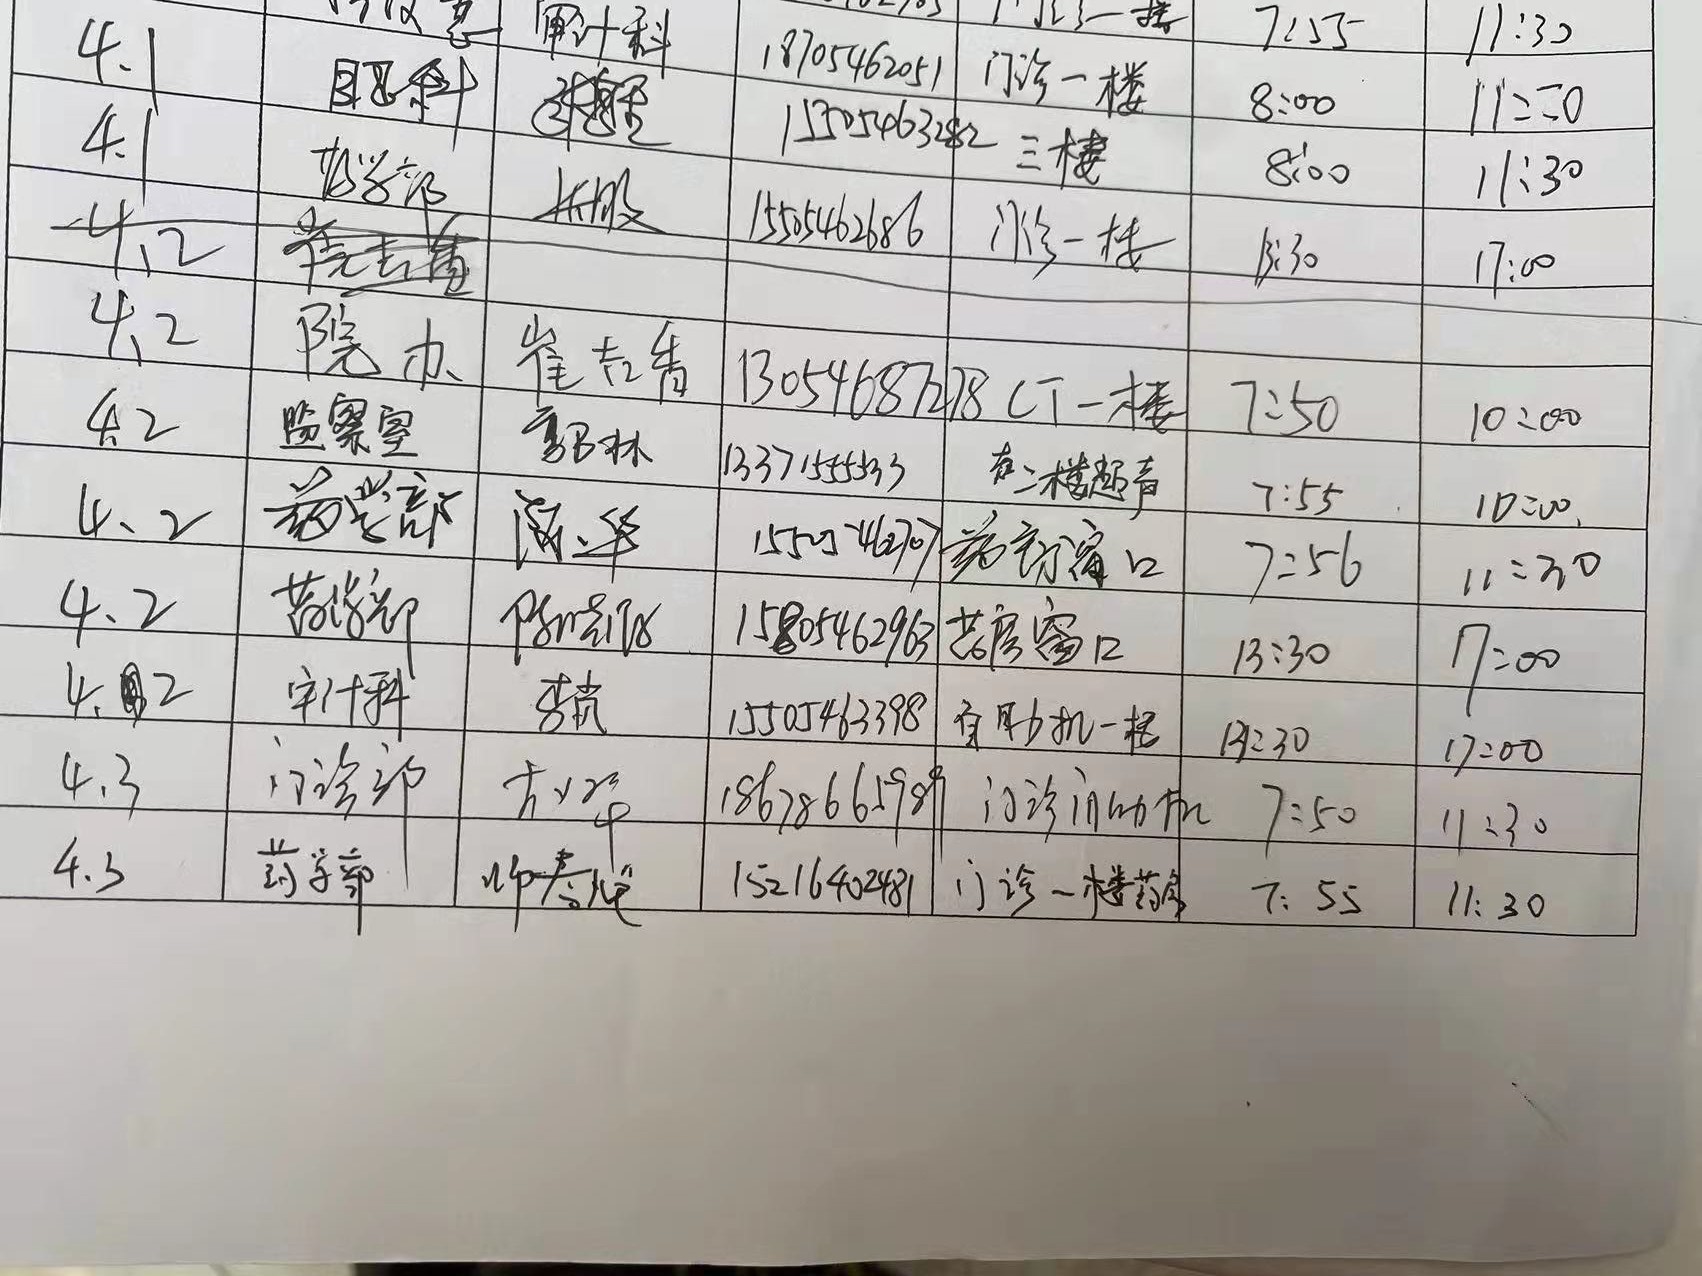 审计科 一楼 7:55 11:30
4.1 眼科 18705462051 门诊一楼 8:00 11:30
4.1 药学部 15505463282 三楼 8:00 11:30
15505462686 门诊一楼 13:30 17:00
4.2 崔吉香
4.2 院办 崔吉香 13054687278 CT一楼 7:50 10:00
4.2 监察室 郭林 13371555533 二楼超声 7:55 10:00
4.2 药学部 15505462707 药房窗口 7:56 11:30
4.2 药学部 15805462963 药房窗口 13:30 17:00
4.2 审计科 李岚 15505463398 自助机一楼 13:30 17:00
4.3 门诊部 1867866598 门诊自助机 7:50 11:30
4.3 药学部 15216402481 门诊一楼药房 7:55 11:30